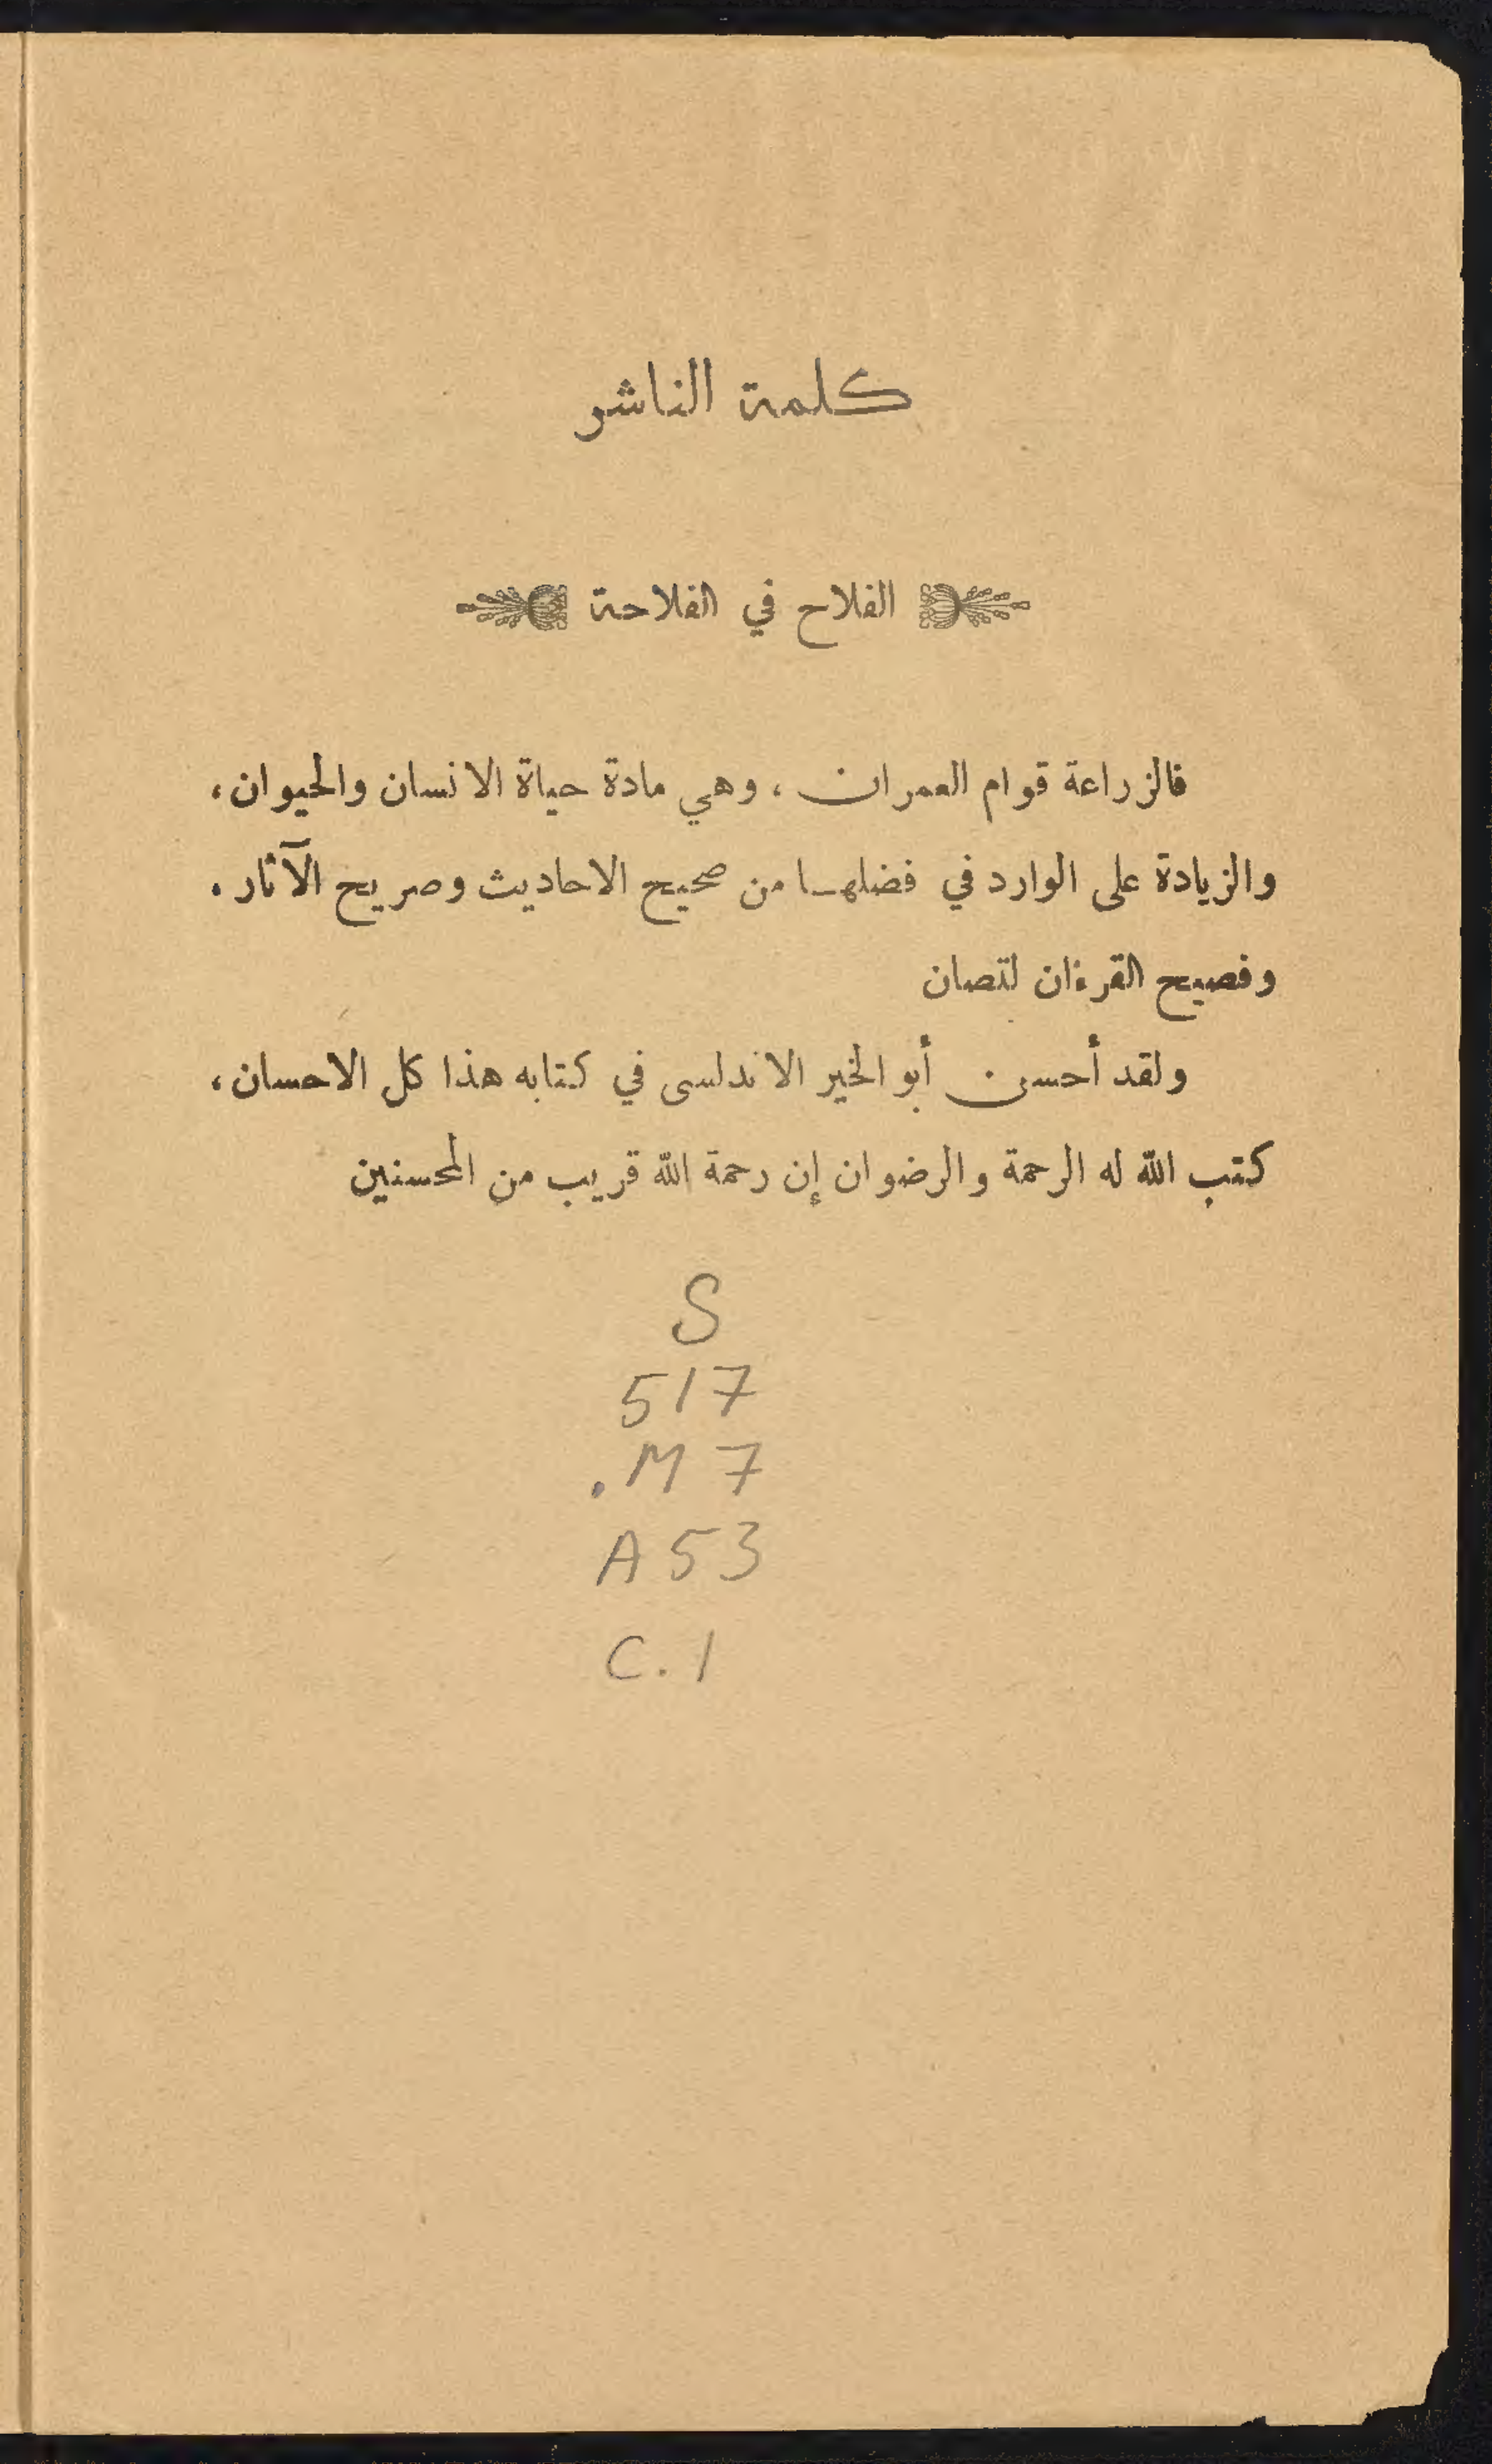 كلمة الناشر
الفلاح في الفلاحة
فالزراعة قوام العمران ، وهي مادة حياة الانسان والحيوان ،
والزيادة على الوارد في فضلها من صحيح الاحاديث وصريح الآثار .
وفصيح القرءان لتصان
ولقد أحسن أبو الخير الاندلسى في كتابه هذا كل الاحسان ،
كتب الله له الرحمة والرضوان إن رحمة الله قريب من المحسنين
S
517
.M7
A53
C.1